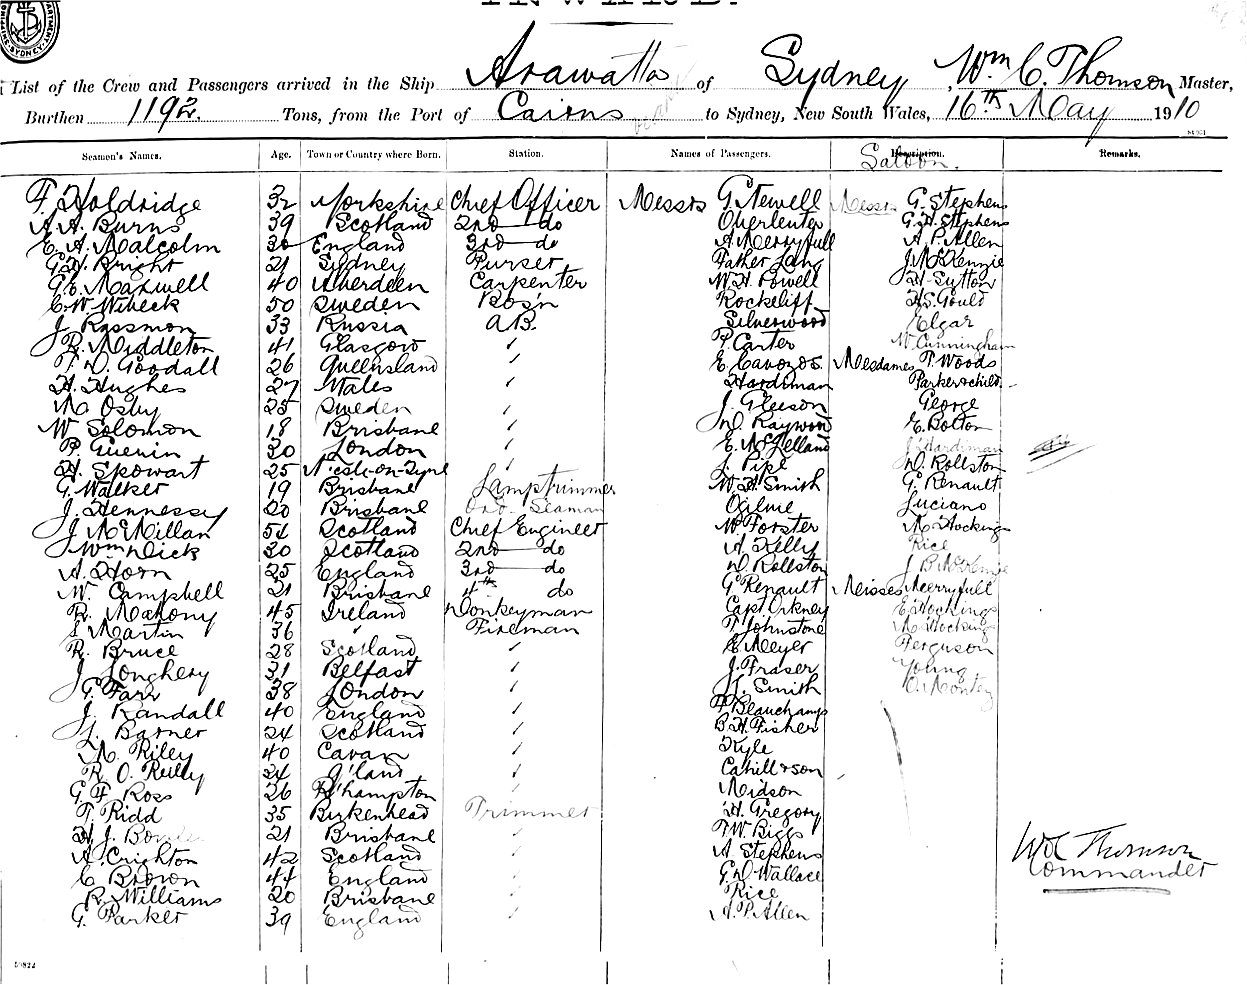 INWARD.
List of the Crew and Passengers arrived in the Ship Arawatta of Sydney, Wm C. Thomson Master,
Burthen 1192. Tons, from the Port of Cairns to Sydney, New South Wales, 16th May 1910
Seamen's Names. Age. Town or Country where Born. Station. Names of Passengers. Description. Remarks.
Saloon.
F. Holdridge 32 Yorkshire Chief Officer Messrs G. Newell Messrs G. Stephens
A. A. Burns 39 Scotland 2nd do Oberleuter G. H. Stephens
E. A. Malcolm 30 England 3rd do A Merryfull A. P. Allen
G. H. Bright 21 Sydney Purser Father Lang J. McKenzie
G. E. Maxwell 40 Aberdeen Carpenter W. H. Powell H. Sutton
C. W. Wibeck 50 Sweden Bos'n Rockeliff H. S. Gould
J. Rassmon 33 Russia A.B. Silverwood Elgar
R. Middleton 41 Glasgow ✓ P. Carter W. Cunningham
T. D. Goodall 26 Queensland ✓ E. Cavozos Mesdames T. Woods
H. Hughes 27 Wales ✓ Hardiman Parker & child
M Osby 25 Sweden ✓ J. Gleeson George
W Solomon 18 Brisbane ✓ D. Raywood E. Bolton
P. Guerin 30 London ✓ E. McLelland J. Hardiman
H. Spowart 25 N'csle-on-Tyne ✓ J. Pipe D. Rollston
G. Walker 19 Brisbane Lamptrimmer W. H. Smith G. Renault
J. Hennessy 20 Brisbane Ord. Seaman Ogilvie Luciano
J McMillan 54 Scotland Chief Engineer W. Forster M. Hockings
Wm Dick 30 Scotland 2nd do A. Kelly Rice
A. Horn 25 England 3rd do D. Rollston J B McKenzie
W. Campbell 21 Brisbane 4th do G Renault Misses Merryfull
R. Mahony 45 Ireland Donkeyman Capt Orkney E. Hockings
S Martin 36 " Fireman T. Johnstone M. Hockings
R. Bruce 28 Scotland ✓ E. Meyer Ferguson
J Loughery 31 Belfast ✓ J. Fraser Young
G. Farr 38 London ✓ J. Smith D. Monty
J. Randall 40 England ✓ F. Beauchamp
J. Barner 24 Scotland ✓ B. H. Fisher
M. Riley 40 Cavan ✓ Kyle
R. O. Reilly 24 Q'land ✓ Cahill & son
G. F. Ross 26 R'hampton ✓ Midson
T. Ridd 35 Birkenhead Trimmer H. Gregory
H. J. 21 Brisbane ✓ F. W. Biggs
A. Crighton 42 Scotland ✓ A. Stephens
C. Brown 44 England ✓ G. D. Wallace
R. Williams 20 Brisbane ✓ Rice
G. Parker 39 England ✓ A. P. Allen
W C Thomson
Commander